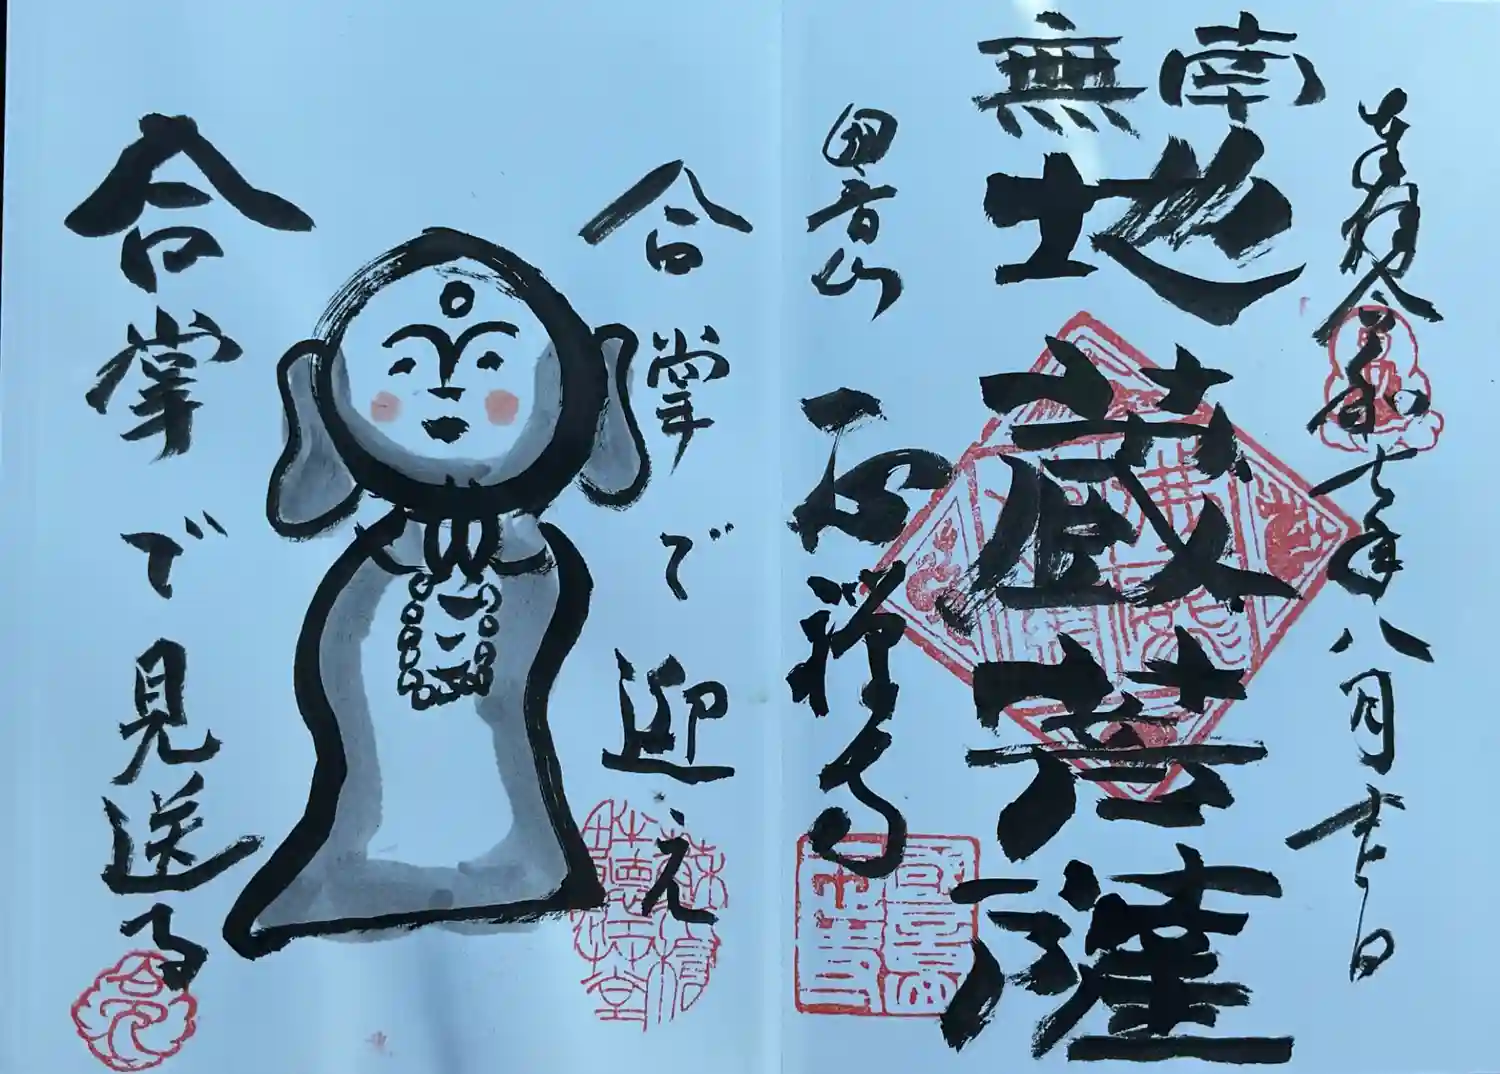 奉拝 令和七年八月 日
南無地蔵菩薩
音山 禅寺
合掌で迎え
合掌で見送る